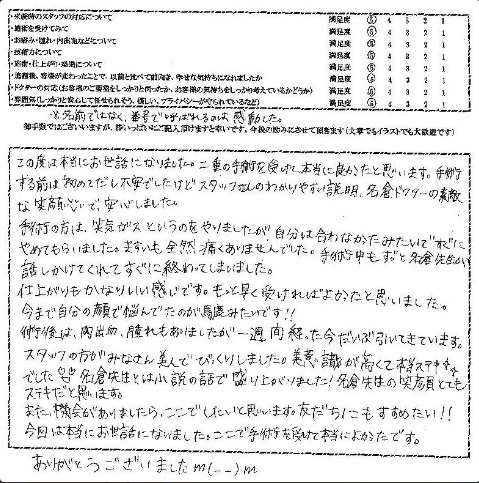 ・来院時のスタッフの対応について 満足度 ⑤ 4 3 2 1
・施術を受けてみて 満足度 ⑤ 4 3 2 1
・お痛み・腫れ・内出血などについて 満足度 ⑤ 4 3 2 1
・技術力について 満足度 ⑤ 4 3 2 1
・施術・仕上がり・結果について 満足度 ⑤ 4 3 2 1
・施術後、容姿が変わったことで、以前と比べて前向き、幸せな気持ちになれましたか 満足度 ⑤ 4 3 2 1
・ドクターの対応(お客様のご要望をしっかりと伺ったか、お客様の気持ちをしっかり考えているかどうか) 満足度 ⑤ 4 3 2 1
・雰囲気(しっかりと安心して任せられそう、優しい、プライバシーが守られているなど) 満足度 ⑤ 4 3 2 1
名前ではなく、番号で呼ばれるのは感動した。
御手数ではございいますが、思いっぱいにご記入頂けますと幸いです。今後の励みにさせて頂きます(文章でもイラストでも大歓迎です)
この度は本当にお世話になりました。二重の手術を受けて本当に良かったと思います。手術
する前は初めてだし不安でしたけどスタッフさんのわかりやすい説明、名倉ドクターの素敵
な笑顔で安心しました。
手術の方は、笑気ガスというのをやりましたが自分は合わなかたみたいですぐに
やめてもらいました。ますいも全然痛くありませんでした。手術中もずっと名倉先生が
話しかけてくれてすぐに終わってしまいました。
仕上がりもかなりいい感じです。もっと早く受ければよかたと思いました。
今まで自分の顔で悩んでたのが馬鹿みたいです!!
術後は、内出血、腫れもありましたが一週間経った今だいぶ引いてきています。
スタッフの方がみなさん美人でびっくりしました。美意識が高くて本当ステキ
でした♡名倉先生とは小説の話で盛り上がりました!名倉先生の笑顔とても
ステキだと思います。
また、機会がありましたら、ここでしたいと思います。友だちにもすすめたい!!
今回は本当にお世話になりました。ここで手術を受けて本当によかたです。
ありがとうございましたm(__)m